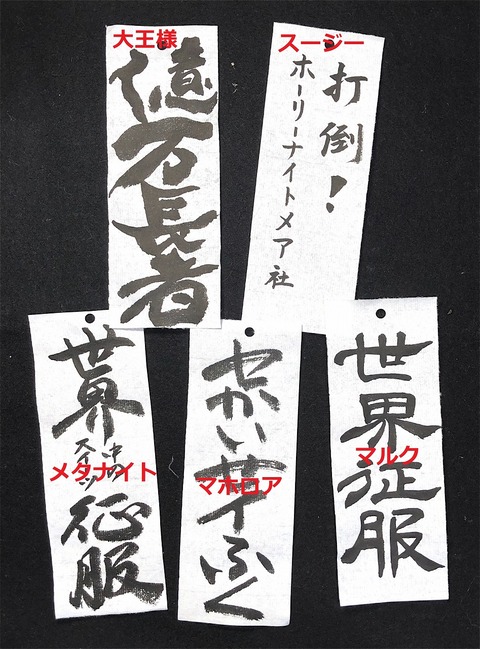 大王様
億万長者
スージー
打倒！
ホーリーナイトメア社
メタナイト
世界
中の
スイーツ
征服
マホロア
せかいせイふく
マルク
世界征服